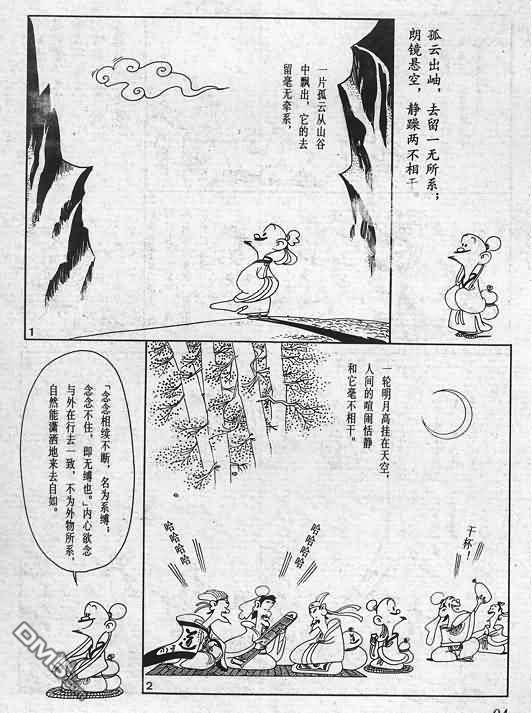 孤云出岫，去留一无所系；
朗镜悬空，静躁两不相干。
一片孤云从山谷
中飘出，它的去
留毫无牵系，
1
一轮明月高挂在天空，
人间的喧闹恬静
和它毫不相干。
干杯！
哈哈哈哈
哈哈哈哈
哈哈哈哈
道
2
「念念相续不断，名为系缚；
念念不住，即无缚也。」内心欲念
与外在行去一致，不为外物所系，
自然能潇洒地来去自如。